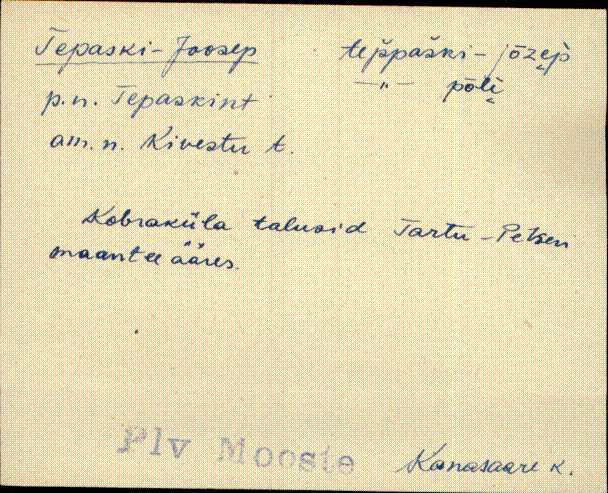 Tepaski-Joosep teppaški-jōzep
p.n. Tepaskint —„— pōli
am.n. Kivestu t.
Kobraküla talusid Tartu-Petseri
maantee ääres.
Plv Mooste Kanasaare k.